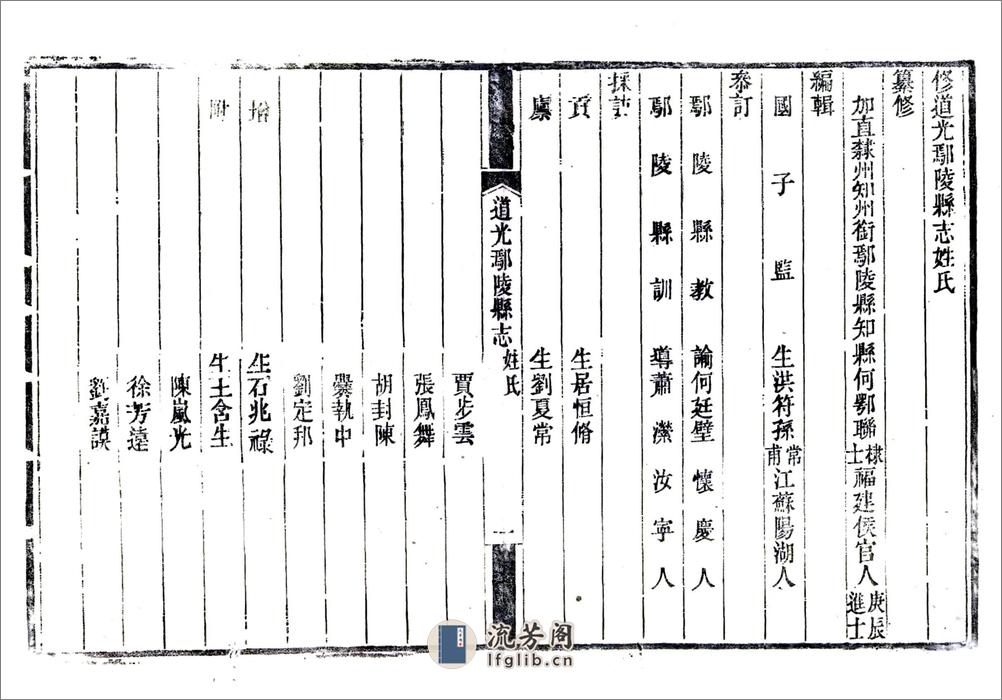 修道光鄢陵縣志姓氏
纂修
加直隸州知州銜鄢陵縣知縣何鄂聯棣士福建侯官人庚辰進士
編輯
國子監生洪符孫常甫江蘇陽湖人
叅訂
鄢陵縣教諭何廷璧懷慶人
鄢陵縣訓導蕭濴汝寧人
採訪
貢生居恒脩
廩生劉夏常
道光鄢陵縣志 姓氏 一
賈步雲
張鳳舞
胡封陳
爨執中
劉定邦
增生石兆祿
附生王含生
陳嵐光
徐芳遠
劉嘉謨
流芳阁
lfglib.cn